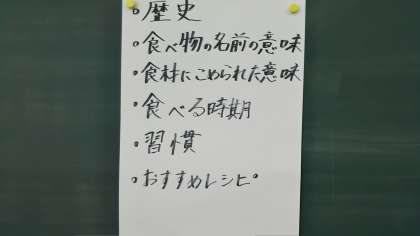 ・歴史
・食べ物の名前の意味
・食材にこめられた意味
・食べる時期
・習慣
・おすすめレシピ